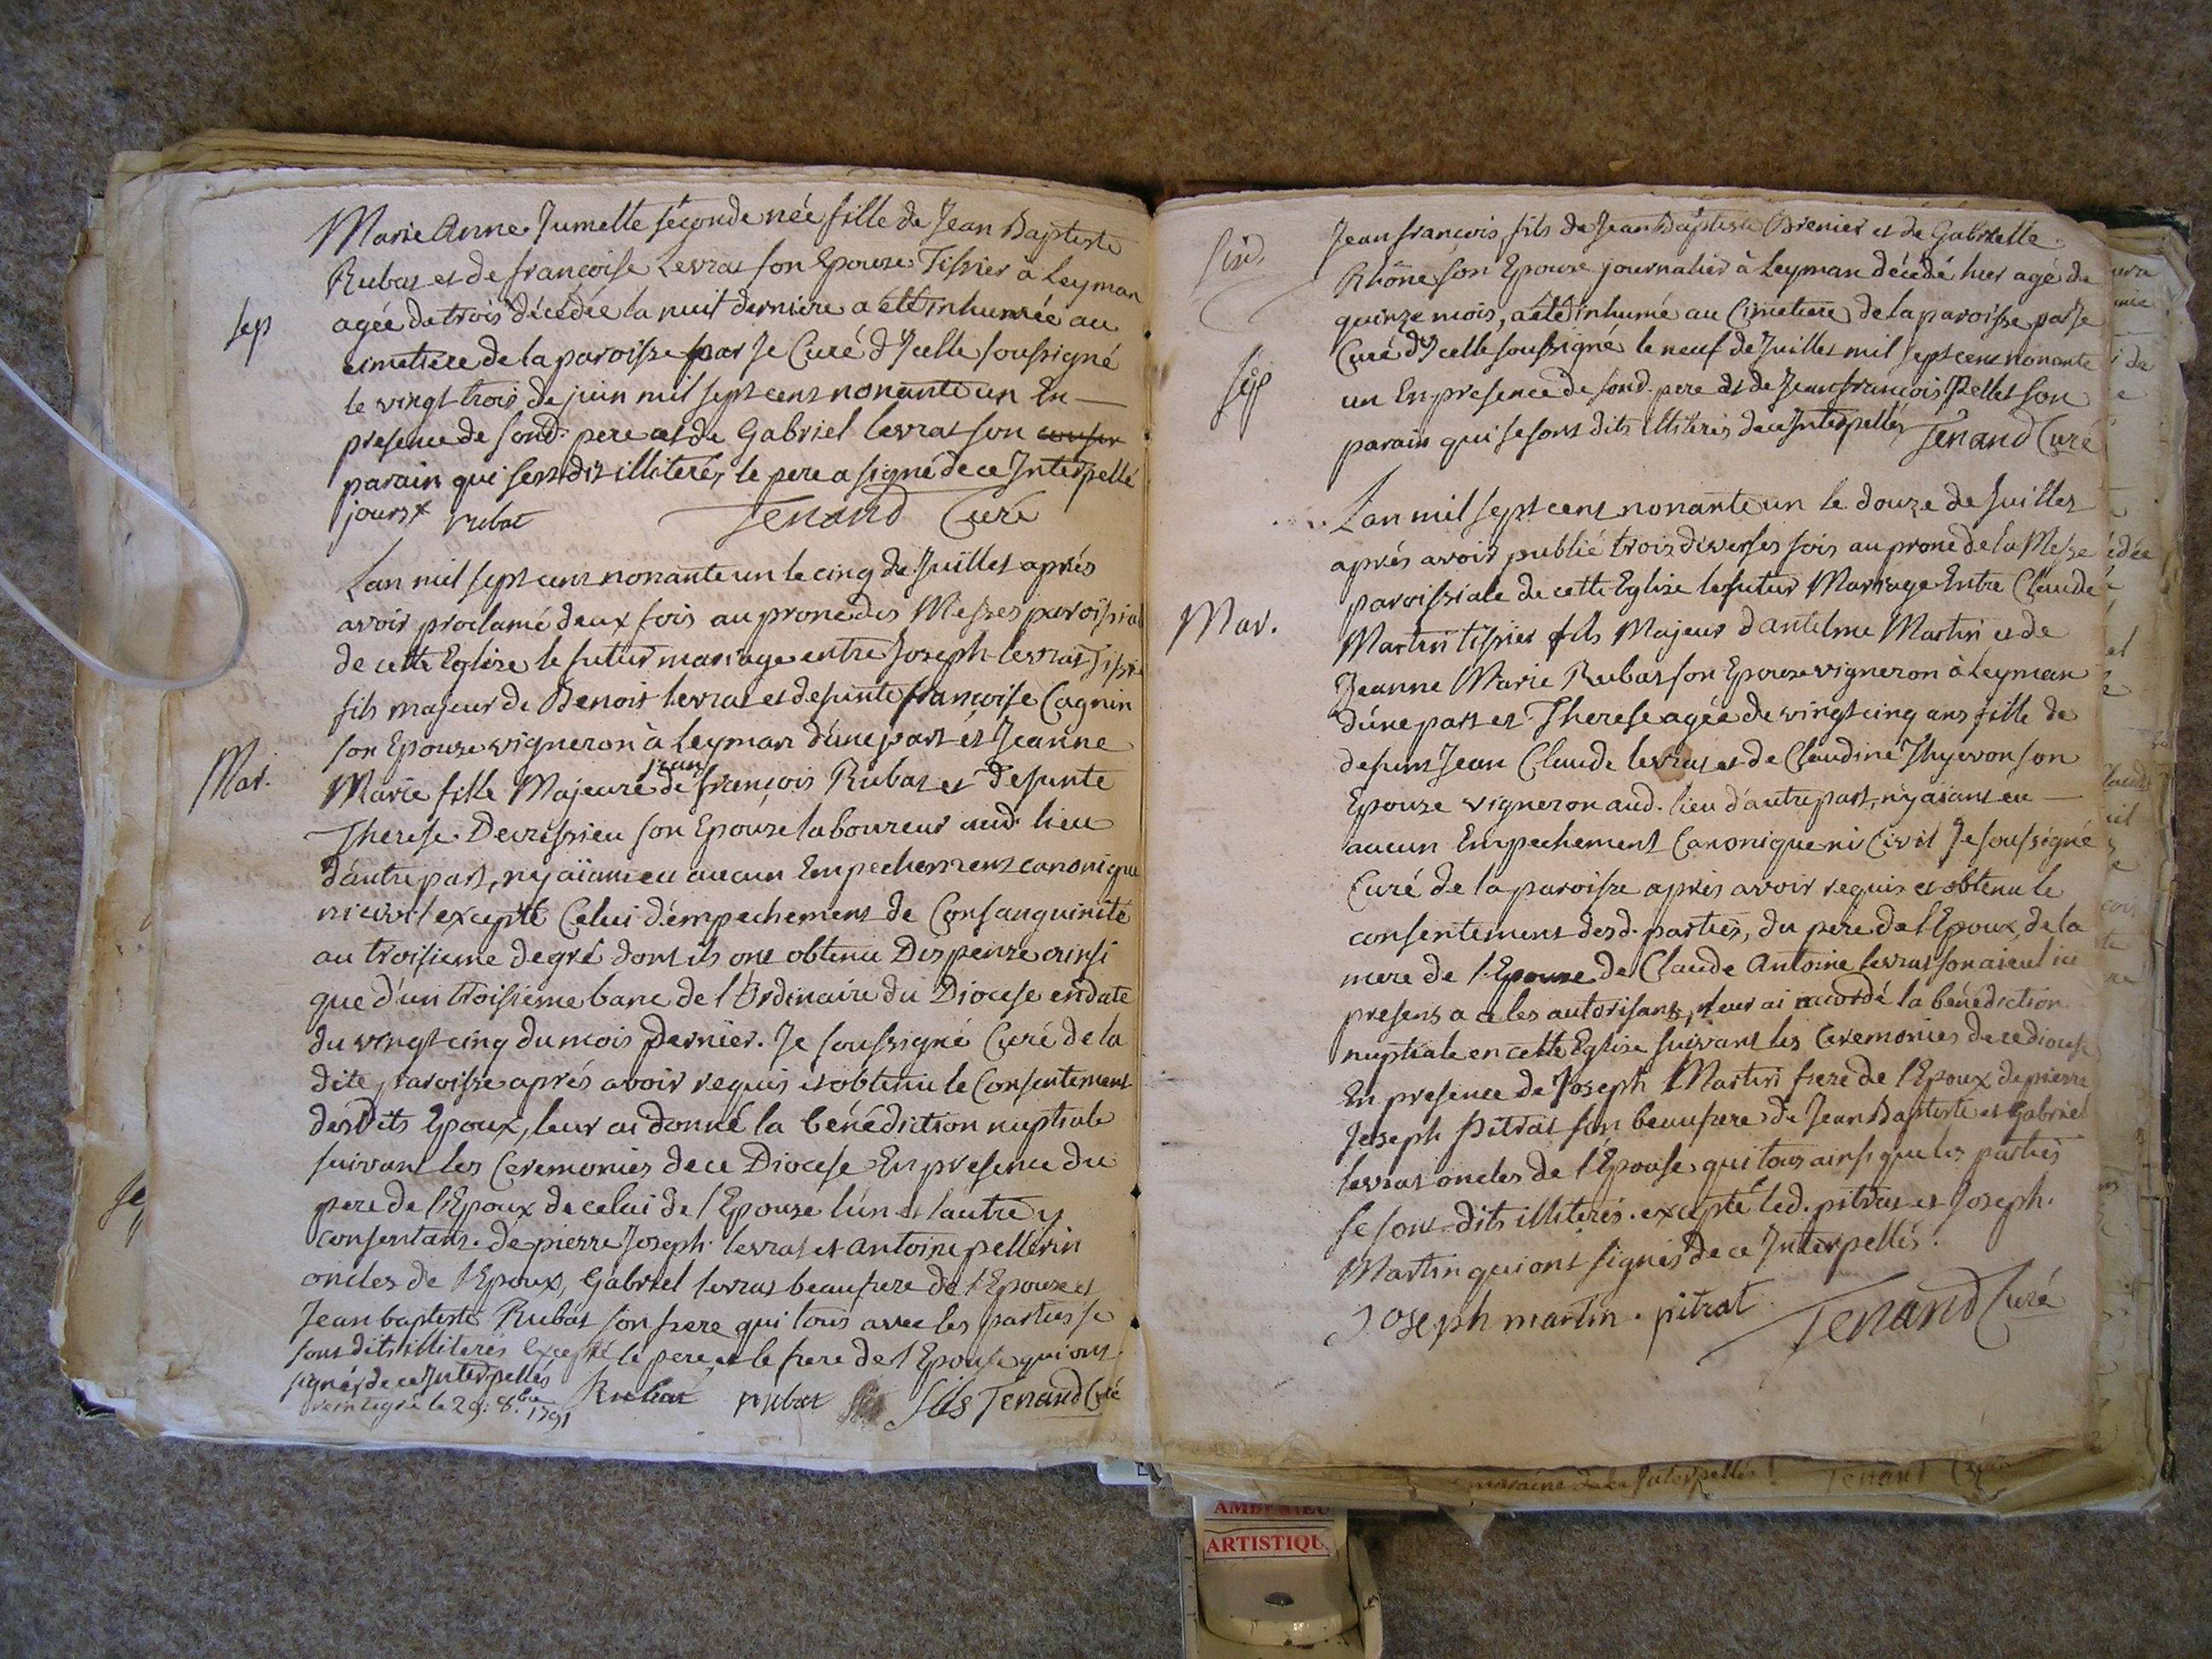 Marie Anne Jumelle seconde née fille de Jean Baptiste
Rubat et de françoise Levrat son Epouse Tissier à Leyman
sep
agée de trois décédée la nuit derniere a été inhumée au
cimetiere de la paroisse par Je Curé d'Jcelle soussigné
le vingt trois de juin mil sept cent nonante un En
presence de sond. pere et de Gabriel levrat son
parain qui sest dit illiteré, le pere a signé de ce Jnterpellé
jours + rubat Tenand Curé
Lan mil sept cent nonante un le cinq de Juillet aprés
avoir proclamé deux fois au prone des Messes paroissial
de cette Eglise le futur mariage entre Joseph levrat Tissie
fils majeur de Benoit levrat et defunte françoise Cagnin
son Epouse vigneron à Leyman d'une part et Jeanne
Mar.
jean
Marie fille Majeure de françois Rubat et defunte
Therese Devissieu son Epouse laboureur aud. lieu
d'autre part, n'y aïant eu aucun Empechement canonique
ni civil excepté Celui d'empechement de Consanguinité
au troisieme degré dont ils ont obtenu Dispense ainsi
que d'un troisieme banc de l'Ordinaire du Diocese en date
du vingt cinq du mois dernier. Je soussigné Curé de la
dite paroisse aprés avoir requis et obtenu le Consentement
desdits Epoux, leur ai donné la bénédiction nuptiale
suivant les Ceremonies de ce Diocese En presence du
pere de l'Epoux de celui de l'Epouse l'un et lautre y
consentant. de pierre Joseph levrat et Antoine pellerin
oncles de l'Epoux, Gabriel levrat beaufrere de l'Epouse et
Jean baptiste Rubat son frere qui tous avec les parties se
sont dits illiterés Excepté le pere et le frere de l'Epouse qui ont
signés de ce Jnterpellés
le 29. 8.bre 1791
Rubat rubat fils Tenand Curé
Jean françois fils de Jean Baptiste Brenier et de Gabrielle
Rhône son Epouse journalier à Leyman décédé hier agé de
quinze mois, a été inhumé au Cimetiere de la paroisse par Je
Curé d'Jcelle soussigné le neuf de Juillet mil sept cent nonante
sep
un En presence de sond. pere et de Jean françois Pellet son
parain qui se sont dits illiterés de ce Jnterpellés Tenand Curé
Lan mil sept cent nonante un le douze de Juillet
aprés avoir publié trois diverses fois au prone de la Messe
paroissiale de cette Eglise le futur Mariage Entre Claude
Mar.
Martin tissier fils Majeur d'antelme Martin et de
Jeanne Marie Rubat son Epouse vigneron à Leyman
d'une part et Therese agée de vingt cinq ans fille de
defunt Jean Claude levrat et de Claudine Thyevon son
Epouse vigneron aud. lieu d'autre part, n'y aïant eu
aucun Empechement Canonique ni Civil Je soussigné
Curé de la paroisse aprés avoir requis et obtenu le
consentement desd. parties, du pere de l'Epoux, de la
mere de l'Epouse de Claude Antoine levrat son aieul ici
present a ce les autorisant, leur ai accordé la bénédiction
nuptiale en cette Eglise suivant les Ceremonies de ce diocese
En presence de Joseph Martin frere de l'Epoux de pierre
Joseph Pitrat son beaufrere de Jean Baptiste et Gabriel
levrat oncles de l'Epouse qui tous ainsi que les parties
se sont dits illiterés. excepté led. pitrat et Joseph
Martin qui ont signés de ce Jnterpellés.
Joseph martin. pitrat Tenand Curé
Jnterpellés Tenand Curé
ARTISTIQU